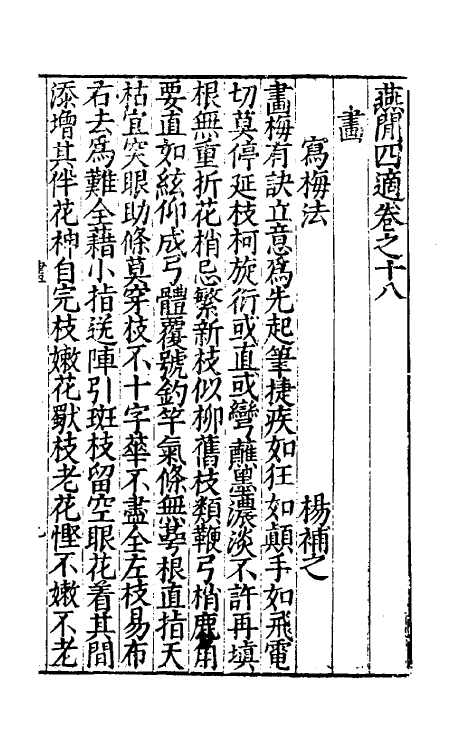 燕閒四適卷之十八
畫
寫梅法 楊補之
畫梅有訣立意爲先起筆捷疾如狂如顛手如飛電
切莫停延枝柯旋衍或直或彎蘸墨濃淡不許再塡
根無重折花梢忌繁新枝似柳舊枝類鞭弓梢鹿角
要直如絃仰成弓體覆號釣竿氣條無萼根直指天
枯宜突眼助條莫穿枝不十字華不盡全左枝易布
右去爲難全藉小指送陣引斑枝留空眼花着其間
添增其伴花神自完枝嫩花獃枝老花慳不嫩不老
畫